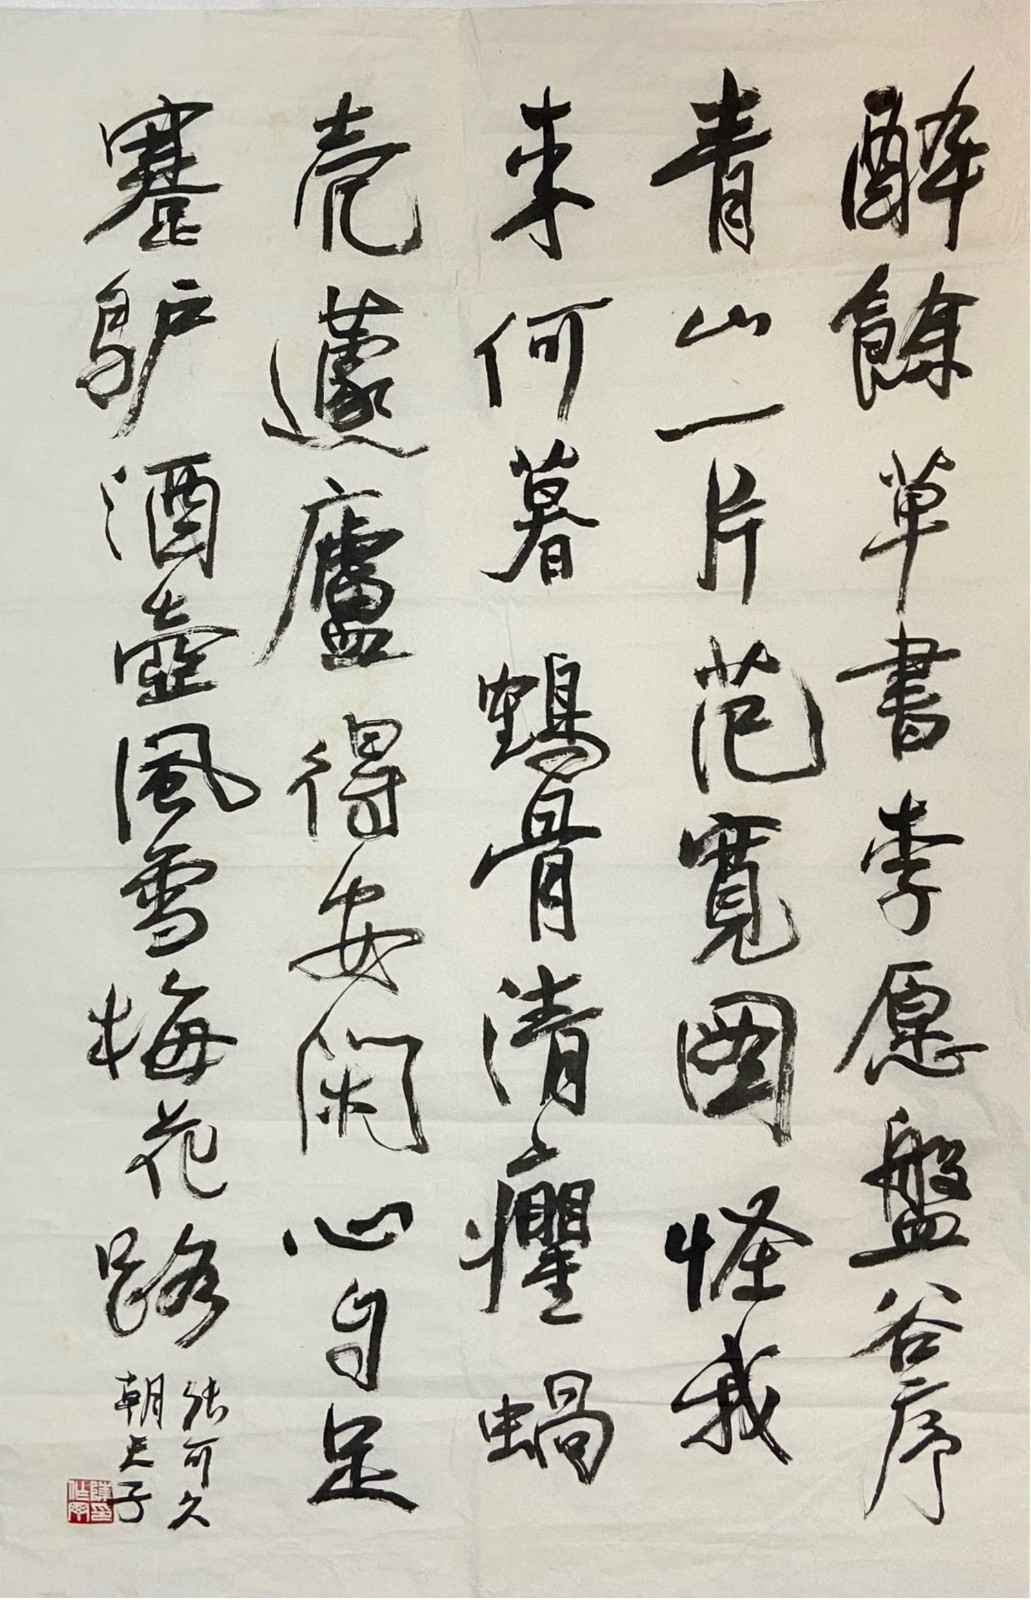 醉餘草書李愿盤谷序
青山一片范寬圖怪我
来何暮鶴骨清癯蝎
壳蘧廬得安閑心自足
蹇驴酒壺風雪梅花路
张可久
朝天子